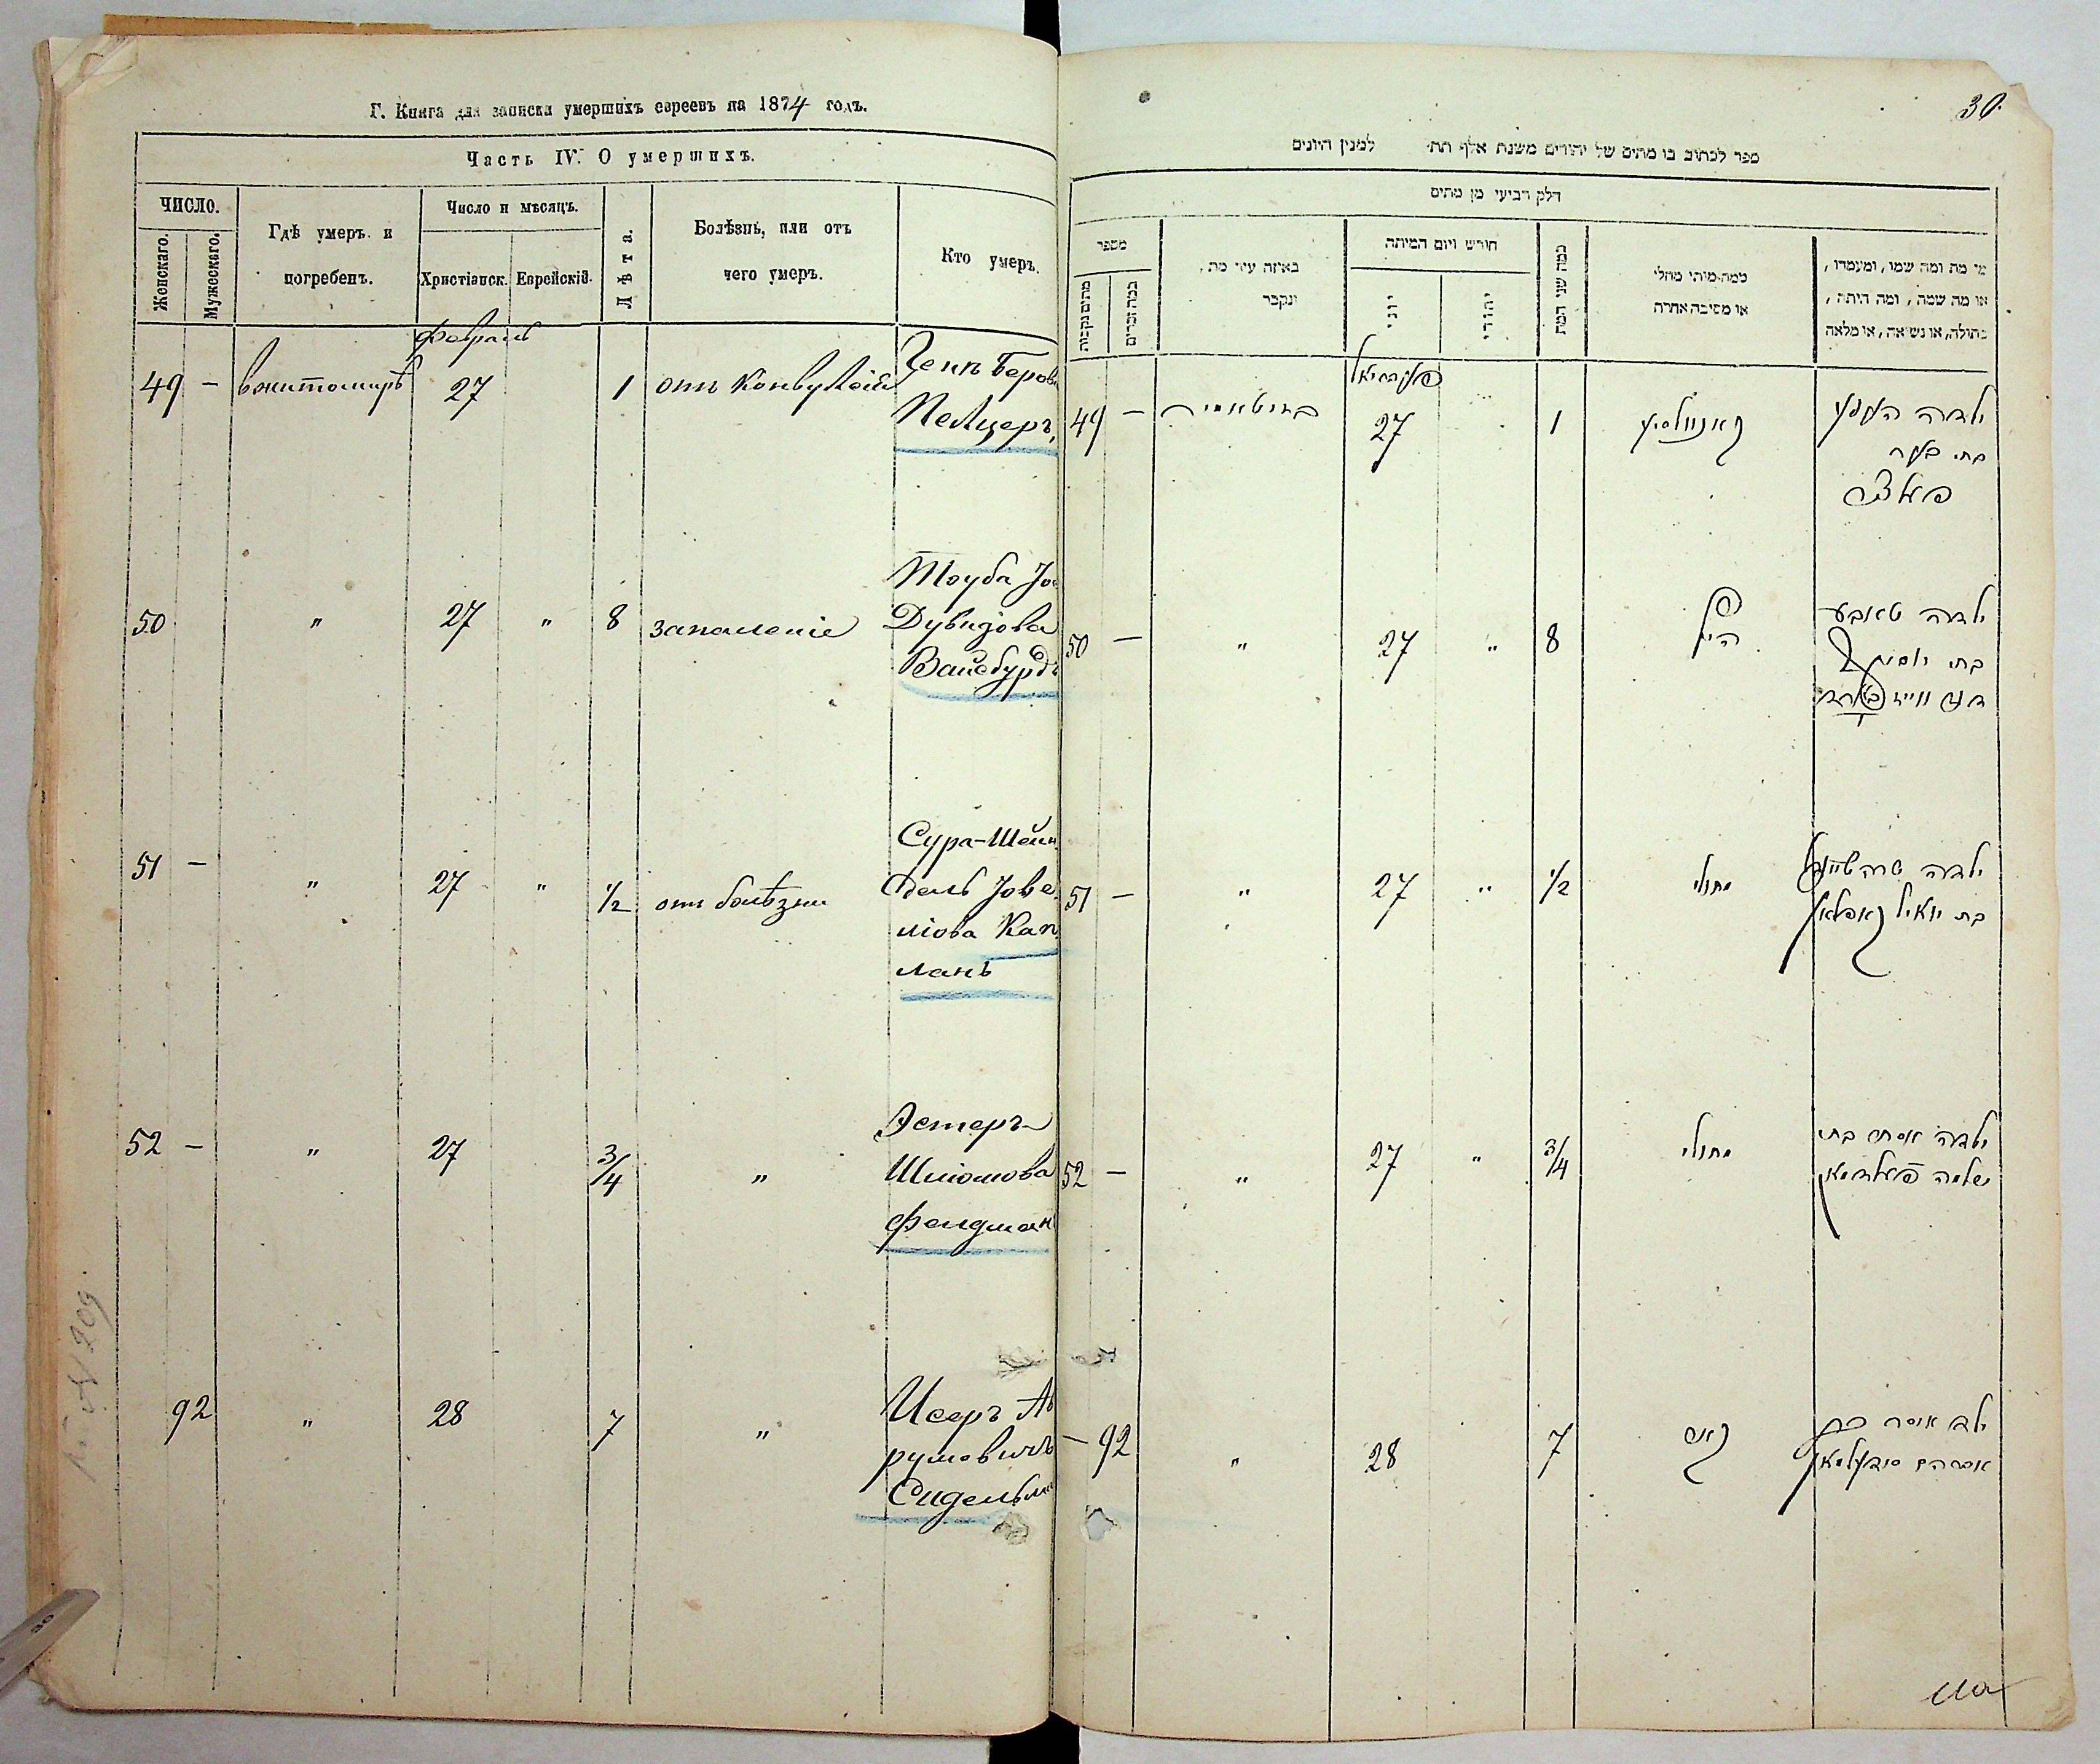 Г. Книга для записки умершихъ евреевъ на 1874 годъ.
Часть IV. О умершихъ.
ЧИСЛО.
Женскаго.
Мужескаго.
Гдѣ умеръ и
погребенъ.
Число и мѣсяцъ.
Христіанск.
Еврейскій.
Лѣта.
Болѣзнь, или отъ
чего умеръ.
Кто умеръ.
Февраль
49 — вжитомирѣ 27 1 отъ конвулсій
Беров
Пелцеръ,
50 " 27 " 8 запаленіе
Тоуба Іо
Дувидова
Вайсбурдъ
51 — " 27 " 1/2 отъ болѣзни
Сура-Шейн
дель Іове
ліова Кап
ланъ
52 — " 27 3/4 "
Эстеръ
Шліомова
Фелдман
92 " 28 7 "
Исеръ Ав
румовичъ
Сидельма
30
ספר לכתוב בו מתים של יהודים משנת אלף תת למנין היונים
חלק רביעי מן מתים
מספר
מתים נקבות
כמה זכרים
באיזה עיר מת,
ונקבר
חודש ויום המיתה
יוני
יהודי
כמה שני המת
ממה מיתי מחלי
או מסיבה אחרת
מי מת ומה שמו, ומעמדו,
או מה שמה, ומה היתה,
בתולה, או נשואה, או מלאה
49 — בזיטאמיר 27 1 קאנוולסיע
ילדה
בתי בער
פעלצר
50 — " 27 " 8
ילדה טאובע
בתי יוסף
דוד ווייזבארד
51 — " 27 " 1/2 מחולי
ילדה שרה שיינדל
בת יואיל קאפלאן
52 — " 27 " 3/4 מחולי
ילדה אסתר בתי
שלמה פעלדמאן
— 92 " 28 7
ילד איסר בן
אברהם סידעלמאן